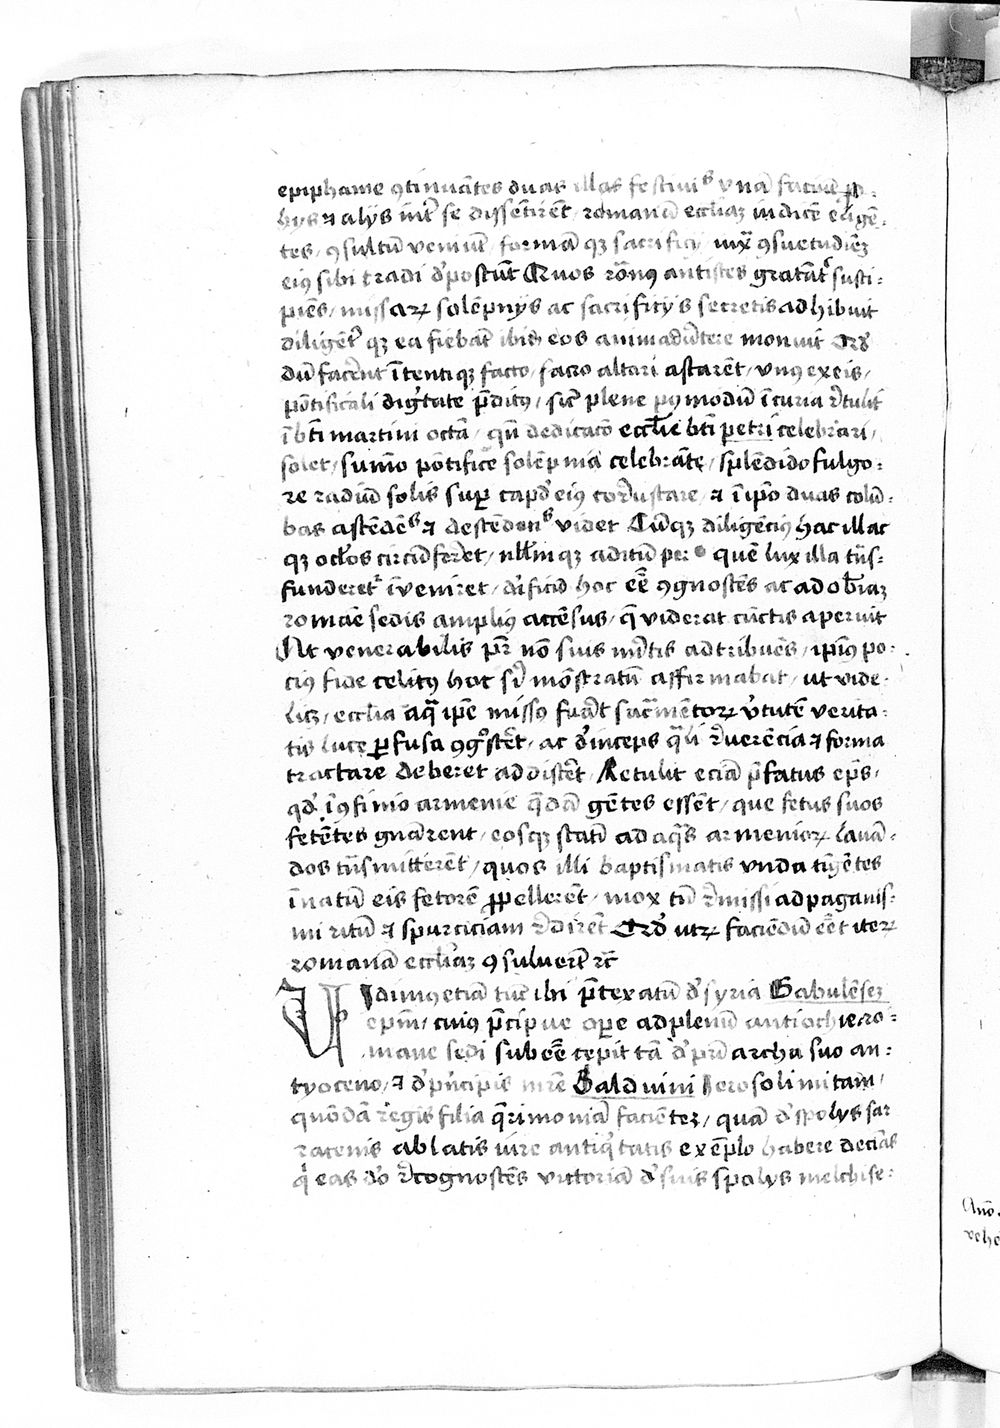 epiphanie ꝯtinuātes duas illas festiui⁹ vnā faciūt p̱ :
hijs ⁊ alijs int̄ se dissētirēt / romanā eccl̄iaꝫ iudicē eligē :
tes / ꝯsultū veniūt / formā qꝫ sacrificij / iuxᷓ ꝯsuetudinēꝫ
eiꝰ sibi tradi d'poscūt Quos roᷓnꝰ antistes gratāt' susci :
piēs / missaꝝ solēpnijs ac sacrificijs secretis adhibuit
diligēt' qꝫ ea fiebāt ibiꝫ eos animaduertere monuit Qr̄
dū facēnt ītentiqꝫ facto / sacro altari astarēt / vnꝰ ex eis /
pōtificali dig'tate p̄ditꝰ / sic̄ plene pꝰ modū ī curia r'tulit
ī bt̄i martini octā / qn̄ dedicacō eccl̄ie bt̄i petri celebrari /
solet / sūmo pōtifice solēpnia celebrāte / splēdido fulgo :
re radiū solis suꝑ capd' eiꝰ cor'ustare / ⁊ ī ip̄o duas colū :
bas ascēdēs ⁊ descēdentes videt Cūqꝫ diligēciꝰ hac illac
qꝫ oct̄os circūferret / nll̄m qꝫ aditū per quē lux illa tn̄s :
funderet' īveniret / d'ificiū hoc eē̄ ꝯgnoscēs ac ad ob̄iaꝫ
romāe sedis ampliꝰ accēsus / q̄ viderat cūctis aperuit
At venerabilis pr̄ nō suis m'itis adtribuēs / ipiꝰ po :
ciꝰ fide celitꝰ hoc s' mōstratū affirmabat / ut vide :
licꝫ / eccl̄ia a qᷓ ip̄e missꝰ fuāt sacᷓmētoꝝ v'tutē verita :
tis luce ꝑfusa ꝯg'scēt / ac d'inceps qᷓli r'uerēcia ⁊ forma
tractare deberet addiscēt / Retulit eciā p̄fatus ep̄s /
qd' ī ꝯfinio armenie q̄dā gētes essēt / que fetus suos
fetētes gnārent / eosqꝫ statī ad aqᷓs armenioꝝ lauā :
dos tn̄smitterēt / quos illi baptismatis vnda tīgētes
īnatū eis fetorē ꝓpellerēt / mox tn̄ r'missi ad paganis :
mi ritū ⁊ spurciciam r'dirēt Qd' utꝝ faciēdū eēt iteꝝ
romanā eccl̄iaꝫ ꝯsuluerūt r̄c̄
Vidimꝰ etiā tūc ibi p̄texatū d' syria Gabulēseꝫ
ep̄m / cuiꝰ p̄cipue oꝑe ad plenū antiochiea ro :
mane sedi subeē̄ cepit tā d' pr̄iarcha suo an :
tyoceno / ⁊ d' p'ncipis mr̄e Balduini Jerosolimitani /
quōdā regis filia q̄rimoniā faciēteꝫ / quā d' spolijs sar
racenis ablatis iure antiq'tatis exēplo habere decīas
q' eas d'o r'cognoscēs victoriā d' suis spolijs melchise :
Ano
vehe